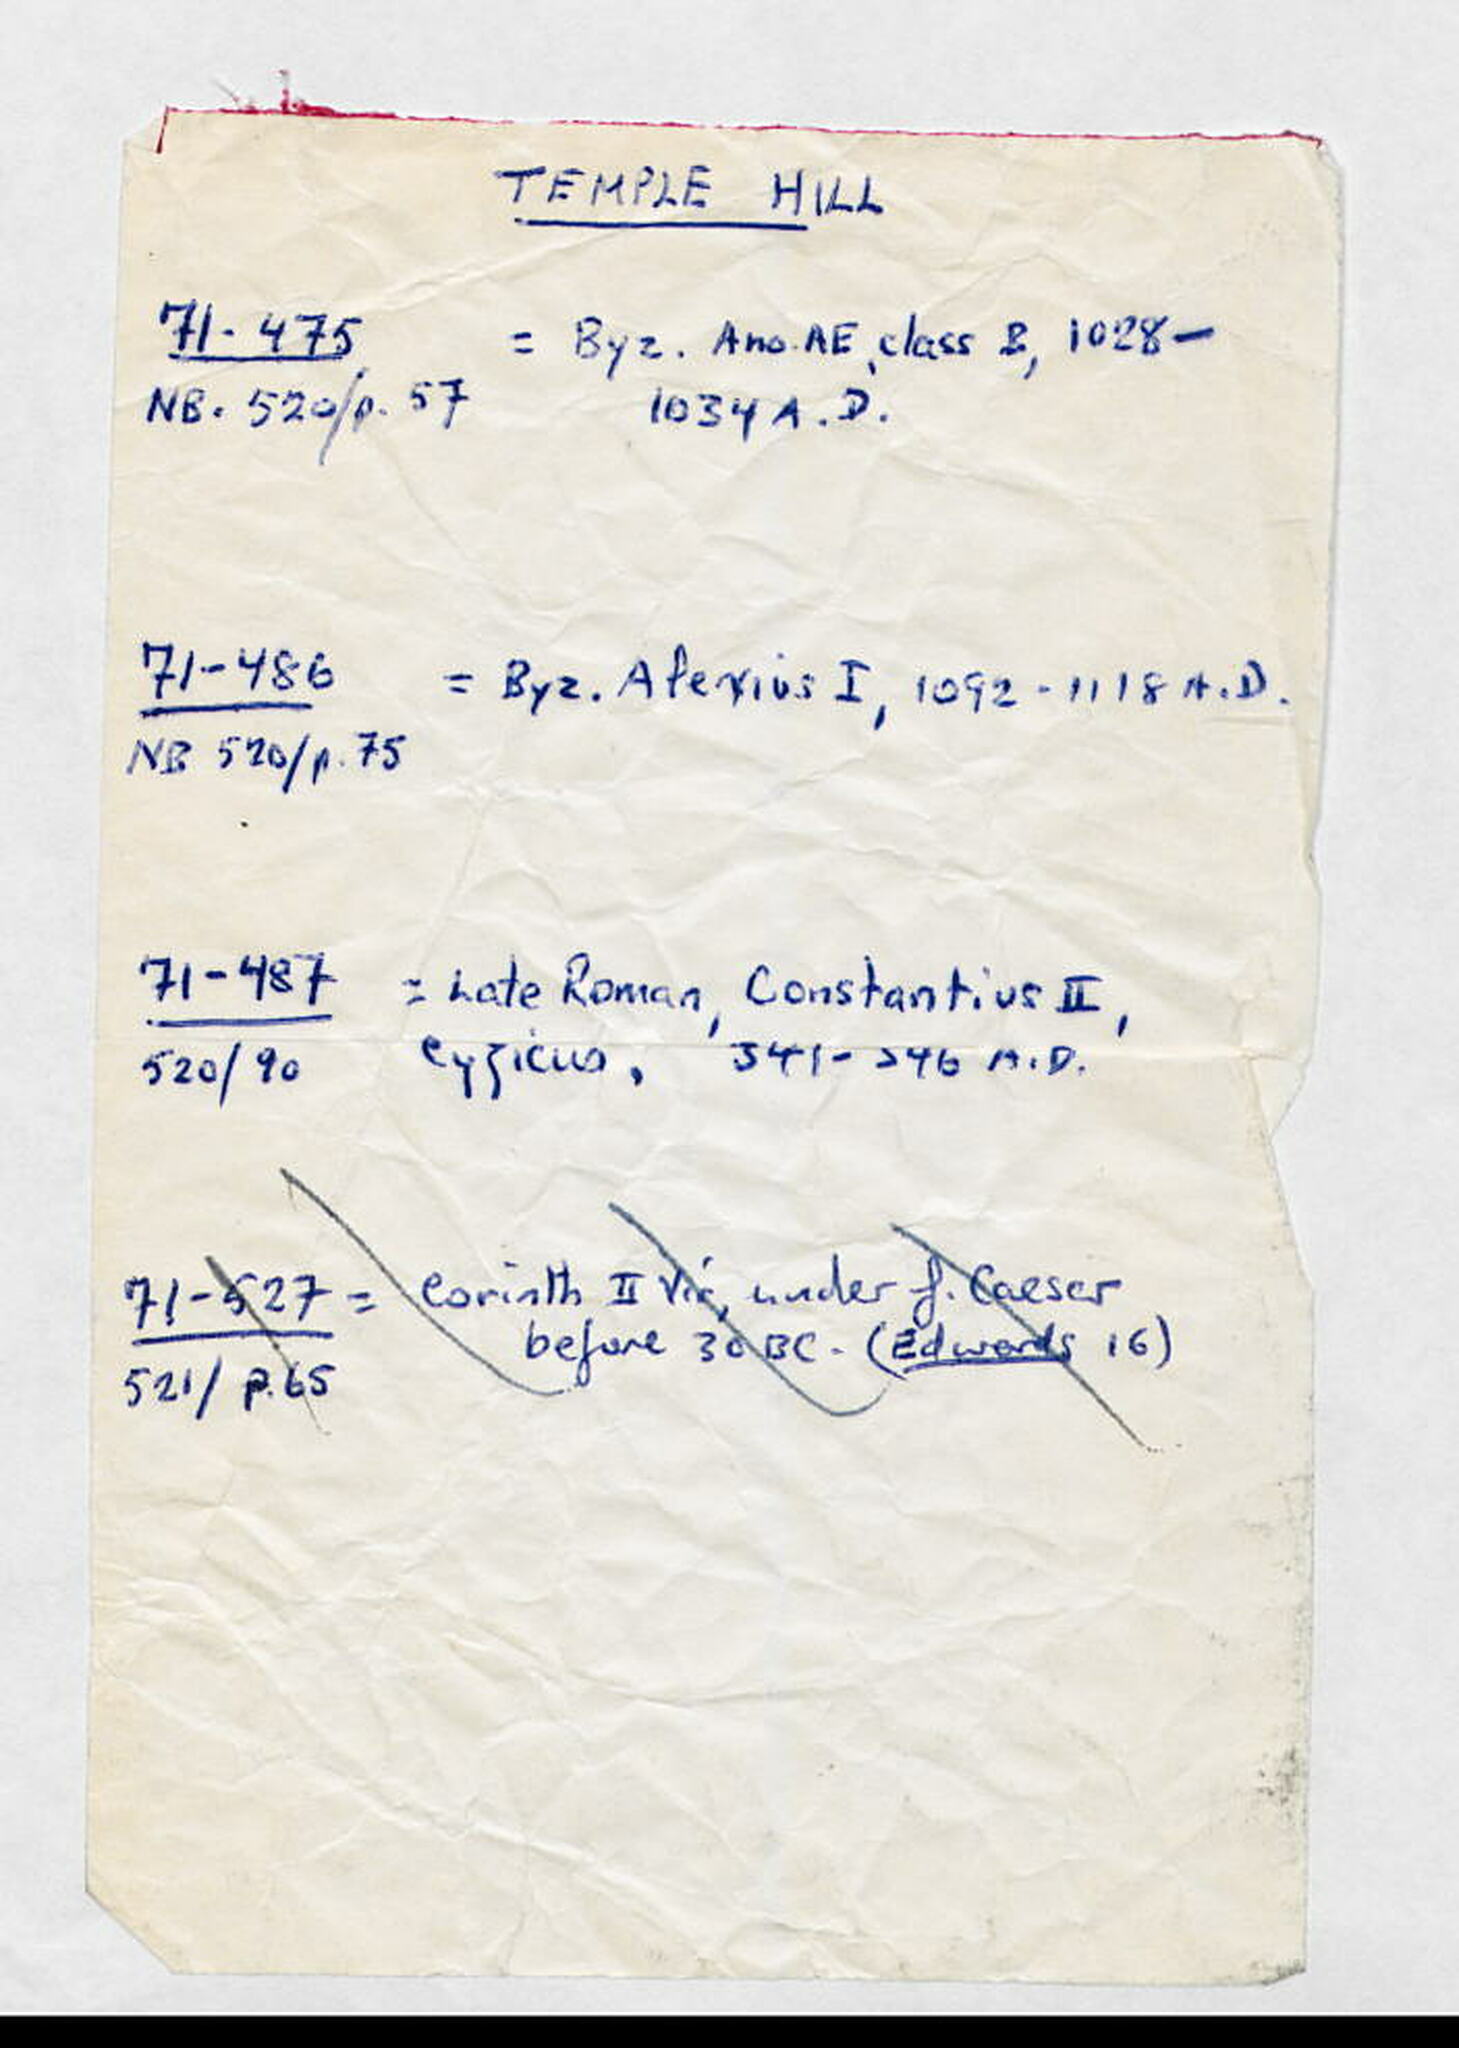 TEMPLE HILL
71-475 = Byz. Ano. AE, class B, 1028-
NB. 520/p. 57 1034 A.D.
71-486 = Byz. Alexius I, 1092-1118 A.D.
NB 520/p. 75
71-487 = Late Roman, Constantius II,
520/90 Cyzicus, 341-346 A.D.
71-527 = Corinth II Vir, under J. Caeser
before 30 BC. (Edwards 16)
521/p. 65